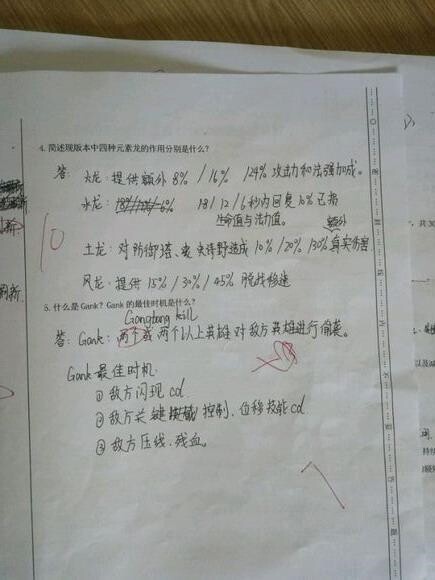 4. 简述现版本中四种元素龙的作用分别是什么?
答: 火龙: 提供额外 8% / 16% / 24% 攻击力和法强加成。
水龙: 18 / 12 / 6 秒内回复 10% 已损
生命值与法力值。
额外
10
土龙: 对防御塔、史诗野造成 10% / 20% / 30% 真实伤害
风龙: 提供 15% / 30% / 45% 脱战移速
5. 什么是 Gank? Gank 的最佳时机是什么?
Gangbang kill
答: Gank: 两个或两个以上英雄对敌方英雄进行偷袭。
Gank 最佳时机
① 敌方闪现 cd
② 敌方关键控制、位移技能cd
③ 敌方压线、残血。
7
刷新